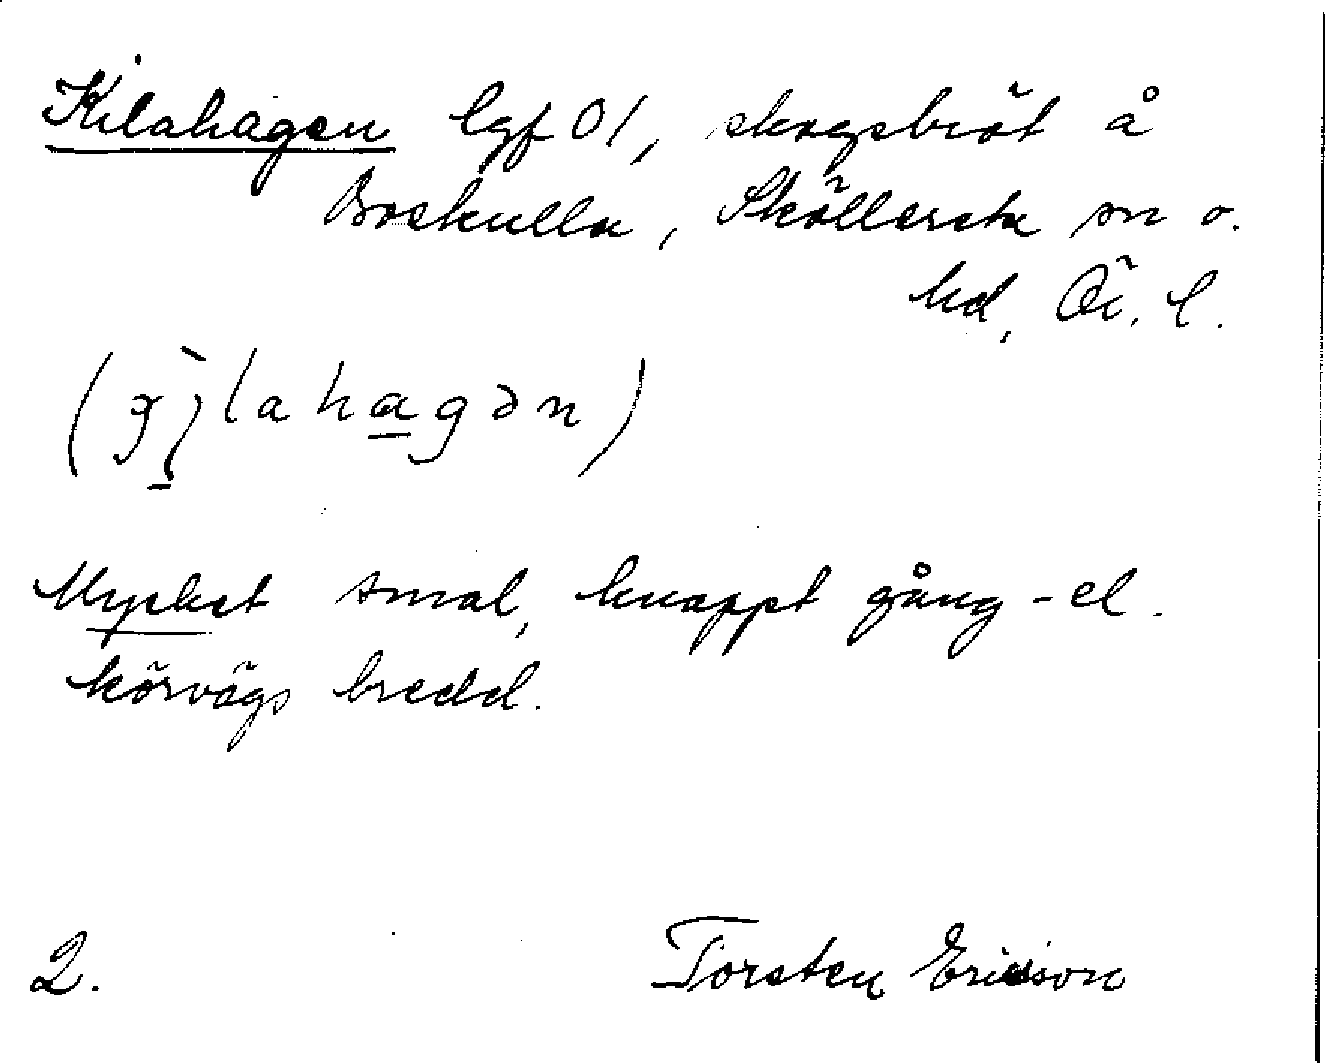 Kilahagen lgf 01, skogsbröt å
Boskulla, Sköllersta sn o.
hd, Ör. l.
lahagən)
Mycket smal, knappt gång- el.
körvägs bredd.
2. Torsten Ericson